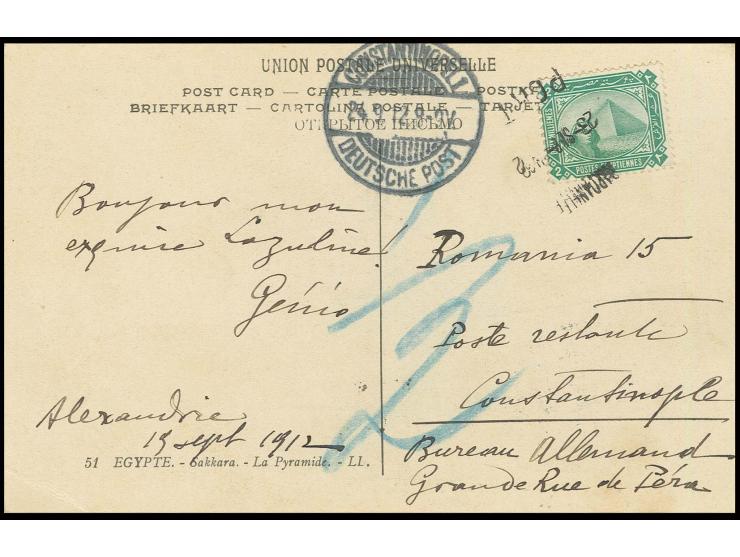 UNION POSTALE UNIVERSELLE
POST CARD — CARTE POSTALE — POSTK
BRIEFKAART — CARTOLINA POSTALE — TARJET
ОТКРЫТОЕ ПИСЬМО
CONSTANTINOPEL 1
12.8-9
DEUTSCHE POST
2
POSTES EGYPTIENNES
2
Bonjour mon
exquise Lazuline!
Génio
Alexandrie
19 Sept 1912
51 EGYPTE. - Sakkara. - La Pyramide. - LL.
Romania 15
Poste restante
Constantinople
Bureau Allemand
Grande Rue de Péra